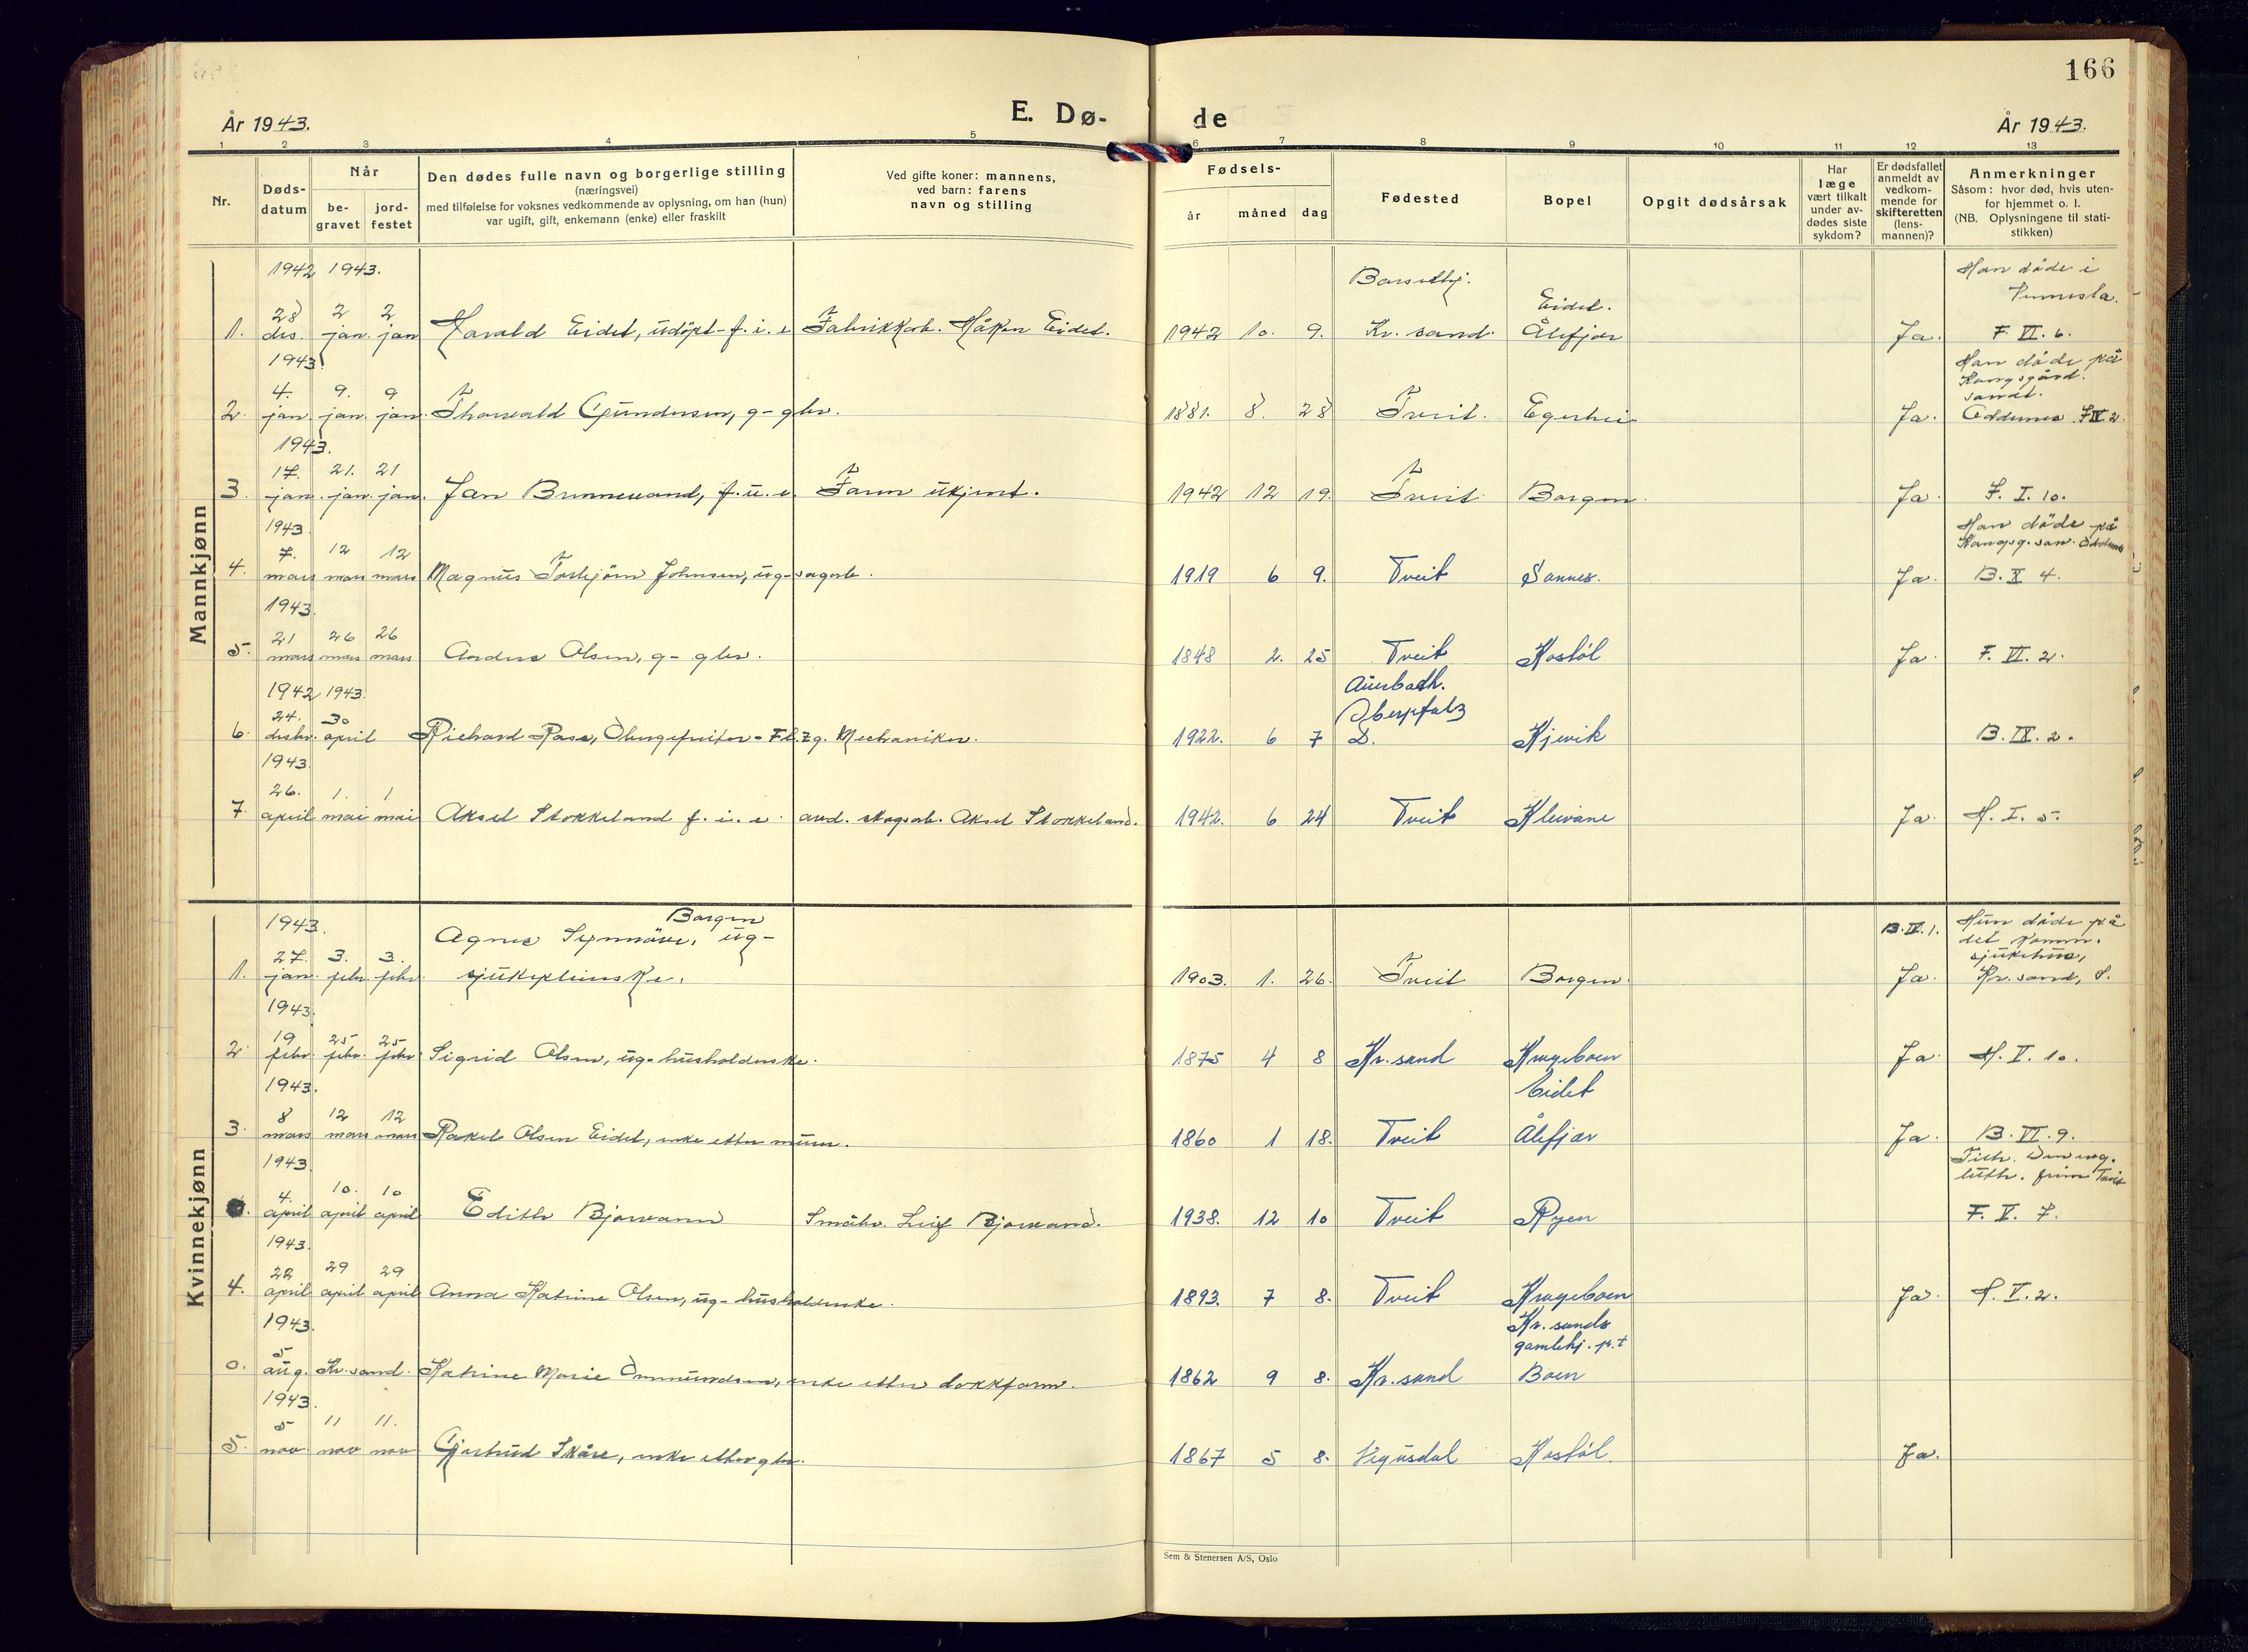 166
År 1943.
E. Dø-
de
År 1943.
1 2 3 4 5 6 7 8 9 10 11 12 13
Nr.
Døds-
datum
Når
be-
gravet
jord-
festet
Den dødes fulle navn og borgerlige stilling
(næringsvei)
med tilføielse for voksnes vedkommende av oplysning, om han (hun)
var ugift, gift, enkemann (enke) eller fraskilt
Ved gifte koner: mannens,
ved barn: farens
navn og stilling
Fødsels-
år måned dag
Fødested
Bopel
Opgit dødsårsak
Har
læge
vært tilkalt
under av-
dødes siste
sykdom?
Er dødsfallet
anmeldt av
vedkom-
mende for
skifteretten
(lens-
mannen)?
Anmerkninger
Såsom: hvor død, hvis uten-
for hjemmet o. l.
(NB. Oplysningene til stati-
stikken)
Mannkjønn
1942 1943. Barselhj. Han döde i
28 2 2 Eidet. Vennesla.
1. des. jan. jan Harald Eidet, udöpt- f. i. e Fabrikkarb. Håkon Eidet. 1942 10. 9. Kr. sand. Ålefjær Ja. F. VI. 6.
1943 Han döde på
4. 9. 9 Kongsgård.
2. jan. jan. jan. Thorvald Gundersen, g- gbr. 1881. 8. 28 Tveit. Egerhei Ja. Oddernes. F IV 2.
1943.
17. 21. 21
3. jan. jan. jan. Jan Brunnevand, f. u. e. Faren ukjent. 1942 12 19. Tveit Borgen. Ja. F. I. 10.
1943. Han döde på
7. 12 12 Kongsg. san. Oddernes
4. mars mars mars Magnus Torbjörn Johnsen, ug- sagarb. 1919 6 9. Tveit Sannes. Ja. B. X 4.
1943.
21 26 26
5. mars mars mars Andrea Olsen, g- gbr. 1848 2. 25 Tveit Kostöl Ja. F. VI. 2.
1942 1943. Auerbach.
24. 30 Oberpfalz
6. desbr. april Richard Rass, Obergefreiter - Flzg. Mechaniker. 1922. 6 7 D. Kjevik B. IX. 2.
1943
26. 1. 1
7. april mai mai Aksel Stokkeland f. i. e. avd. skogsarb. Aksel Stokkeland. 1942. 6 24 Tveit Kleivane Ja. H. I. 5.
Kvinnekjønn
1943. Borgen B. IV. 1. Hun döde på
Agnes Synnöve, ug- det komm.
27. 3. 3. sjukehus,
1. jan. febr. febr. sjukepleierske. 1903. 1. 26. Tveit Borgen. Ja. Kr. sand, S.
1943.
19 25 25
2. febr. febr. febr. Sigrid Olsen, ug- husholderske. 1875 4 8 Kr. sand Krageboen Ja. H. I. 10.
1943. Eidet
8 12 12
3. mars mars mars Rakel Olsen Eidet, enke etter murer. 1860 1 18. Tveit Ålefjær Ja. B. VI. 9.
1943. Tilh. Den ev.
4. 10. 10 luth. frim. Tveit
april april april Edith Bjorvann Småbr. Leif Bjorvand. 1938. 12 10 Tveit Ryen F. V. 7.
1943.
22 29 29
4. april april april Anna Katrine Olsen, ug- husholderske. 1893. 7 8. Tveit Krageboen Ja. H. V. 2.
1943. Kr. sands
5 gamlehj. p. t
0. aug. Kr. sand. Katrine Marie Ommundsen, enke etter dokkform. 1862 9 8. Kr. sand Boen
1943.
5 11 11.
5. nov. nov nov Gjertrud Skåre, enke etter gbr. 1867 5 8. Vegusdal Kostöl. Ja.
Sem & Stenersen A/S, Oslo